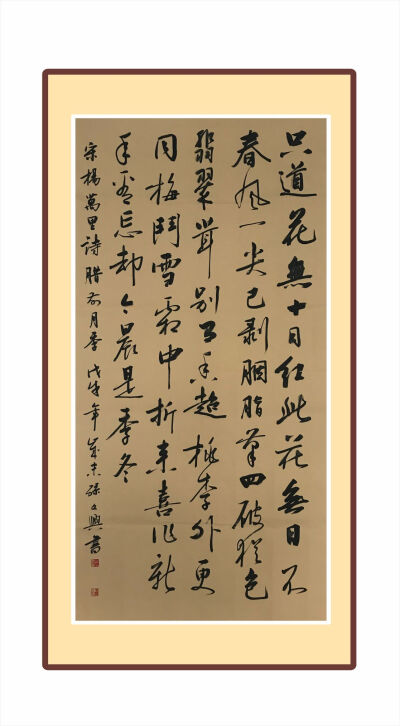 只道花無十日红此花無日不
春风一尖已剥胭脂筆四破犹包
翡翠茸别有香超桃李外更
同梅鬥雪霜中折来喜作新
年看忘却今晨是季冬
宋楊萬里詩腊前月季 戊戌年岁末孫興書